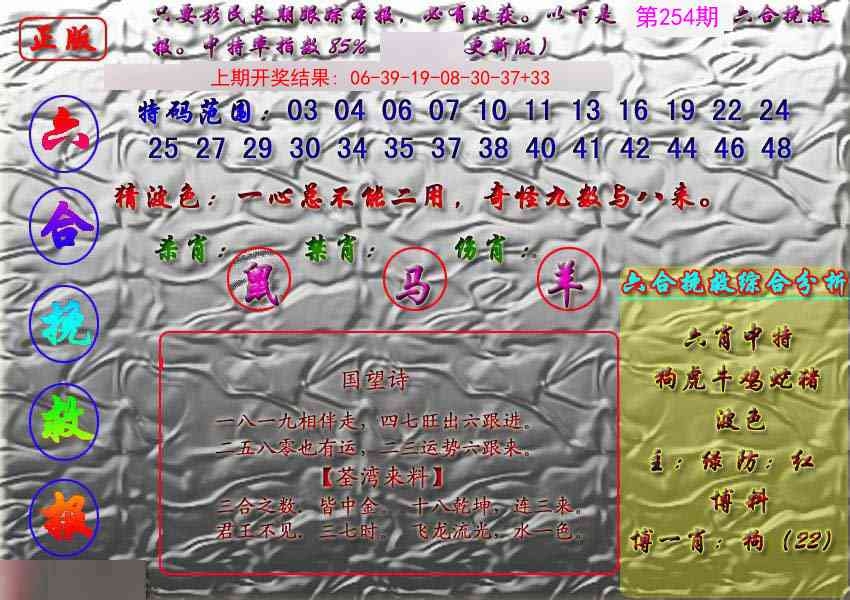 正版
只要彩民长期跟踪本报，必有收获。以下是 第254期 六合挽救
报。中特率指数85% 更新版）
上期开奖结果: 06-39-19-08-30-37+33
特码范围：03 04 06 07 10 11 13 16 19 22 24
25 27 29 30 34 35 37 38 40 41 42 44 46 48
猜波色：一心总不能二用，奇怪九数与八来。
杀肖：鼠 禁肖：马 伤肖：羊
六合挽救报
国望诗
一八一九相伴走，四七旺出六跟进。
二五八零也有运，二三运势六跟来。
【荃湾来料】
三合之数．皆中金。 十八乾坤，连三来。
君王不见．三七时。 飞龙流光，水一色。
六合挽救综合分析
六肖中特
狗虎牛鸡蛇猪
波色
主：绿防：红
博料
博一肖：狗（22）